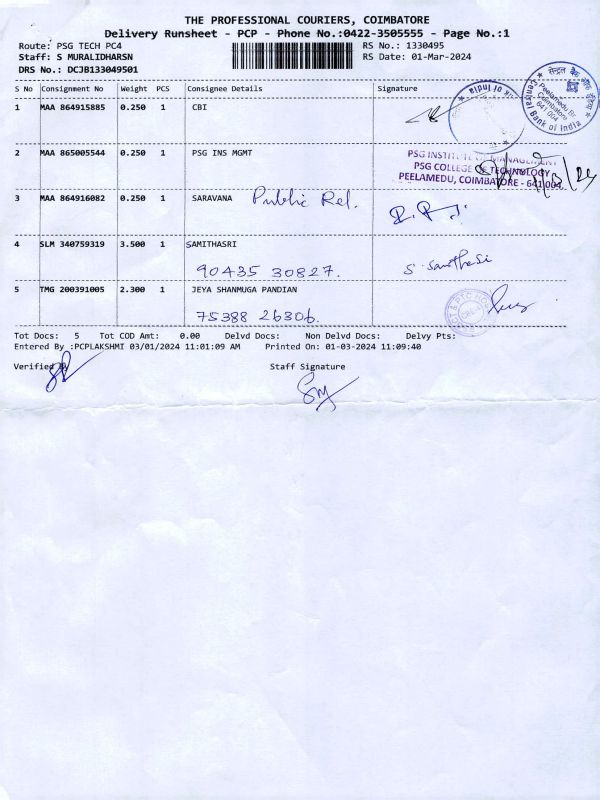 THE PROFESSIONAL COURIERS, COIMBATORE
Delivery Runsheet - PCP - Phone No.:0422-3505555 - Page No.:1
Route: PSG TECH PC4 RS No.: 1330495
Staff: S MURALIDHARSN RS Date: 01-Mar-2024
DRS No.: DCJB133049501
S No Consignment No Weight PCS Consignee Details Signature
1 MAA 864915885 0.250 1 CBI
k of India
सेन्ट्रल बैंक ऑफ इंडिया
Peelamedu Br.
Coimbatore
641 004
Central Bank of India
2 MAA 865005544 0.250 1 PSG INS MGMT
PSG INSTITUTE OF MANAGEMENT
PSG COLLEGE OF TECHNOLOGY
PEELAMEDU, COIMBATORE - 641 004
3 MAA 864916082 0.250 1 SARAVANA Public Rel.
4 SLM 340759319 3.500 1 SAMITHASRI
90435 30827. S. Samithasri
5 TMG 200391005 2.300 1 JEYA SHANMUGA PANDIAN
75388 26306.
Tot Docs: 5 Tot COD Amt: 0.00 Delvd Docs: Non Delvd Docs: Delvy Pts:
Entered By :PCPLAKSHMI 03/01/2024 11:01:09 AM Printed On: 01-03-2024 11:09:40
Verified By Staff Signature